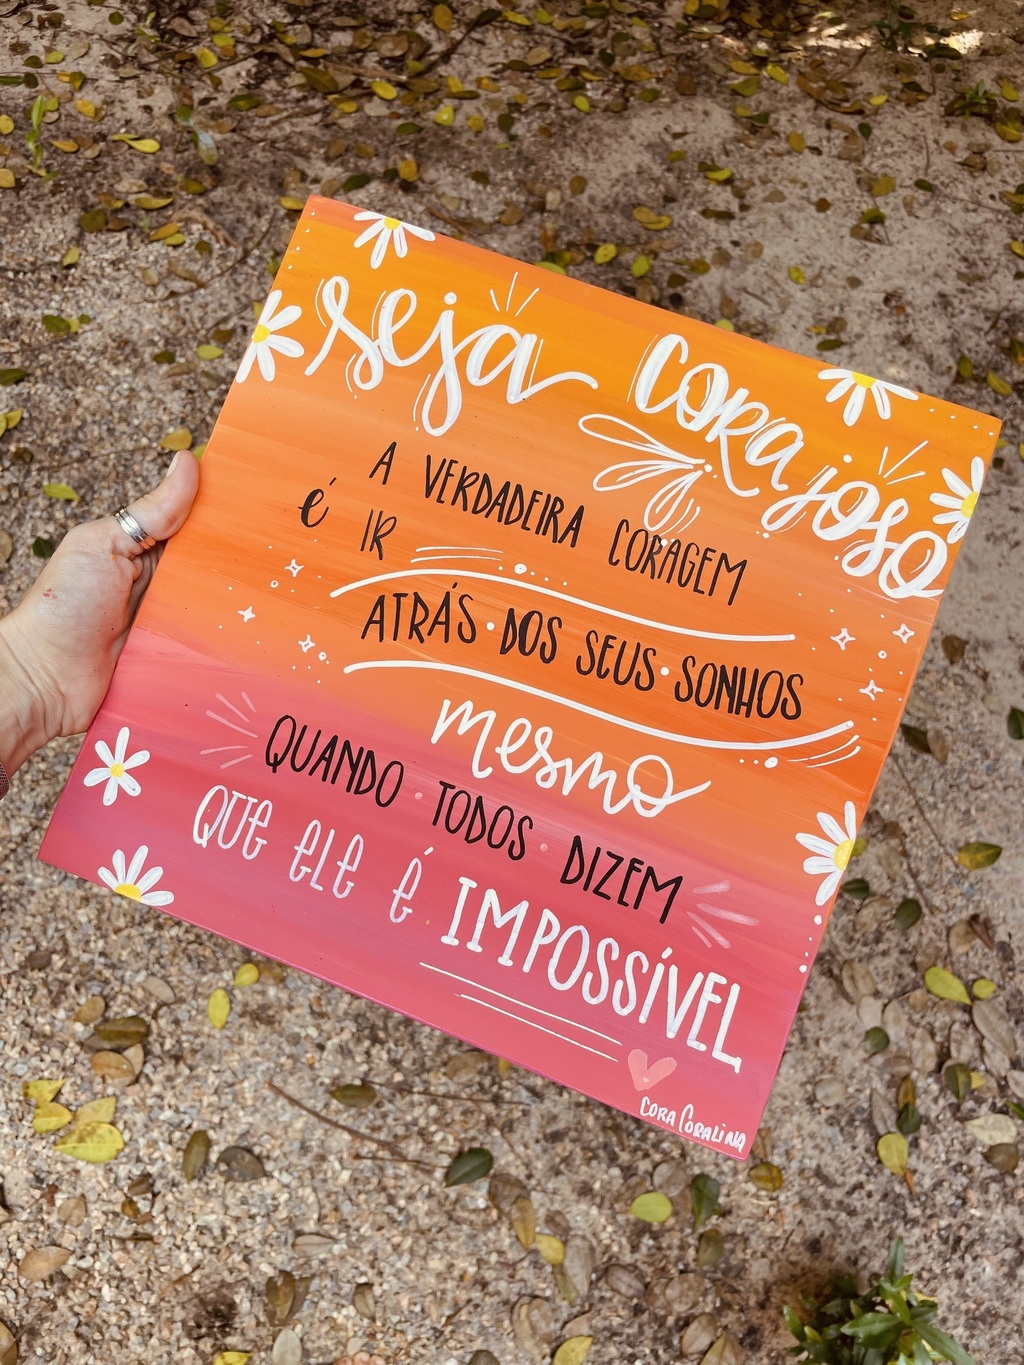 seja corajoso
A VERDADEIRA CORAGEM
É IR
ATRÁS DOS SEUS SONHOS
mesmo
QUANDO TODOS DIZEM
QUE ELE É IMPOSSÍVEL
CORA CORALINA